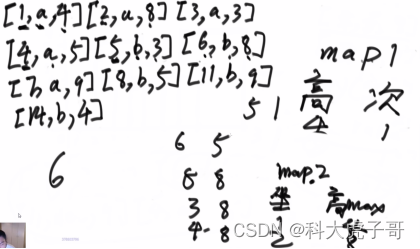 [1,a,4] [2,a,8] [3,a,3]
[4,a,5] [5,b,3] [6,b,8]
[7,a,9] [8,b,5] [11,b,9]
[14,b,4]
map1
高 次
5 1 4 1
6
6 5
8 8
3 8
4 8
map2
高max
2 8
CSDN @科大虎子哥